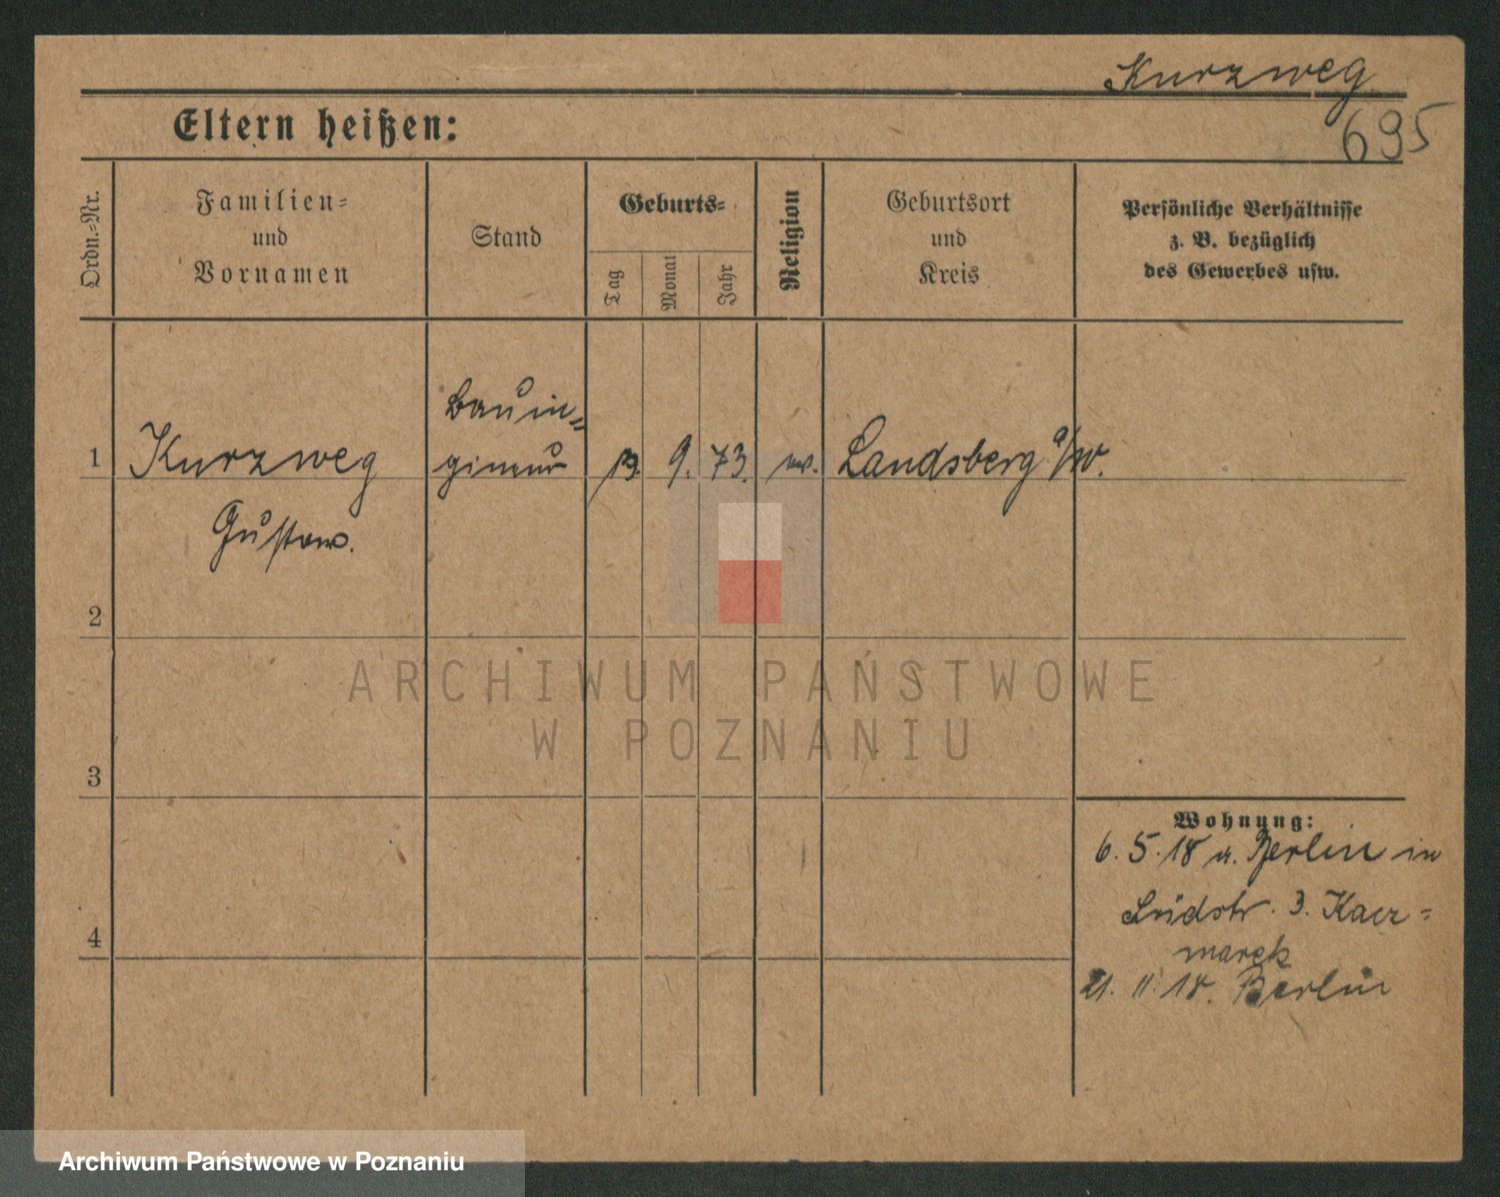 Kurzweg
695
Eltern heißen:
Ordn.-Nr.
Familien-
und
Vornamen
Stand
Geburts-
Tag
Monat
Jahr
Religion
Geburtsort
und
Kreis
Persönliche Verhältnisse
z. B. bezüglich
des Gewerbes usw.
1
Kurzweg
Gustaw.
Bauin=
genieur
9.
73.
Landsberg a/W.
2
3
4
Wohnung:
6. 5. 18 a. Berlin in
3. Kacz=
marek
21. 11. 18. Berlin
ARCHIWUM PAŃSTWOWE
W POZNANIU
Archiwum Państwowe w Poznaniu